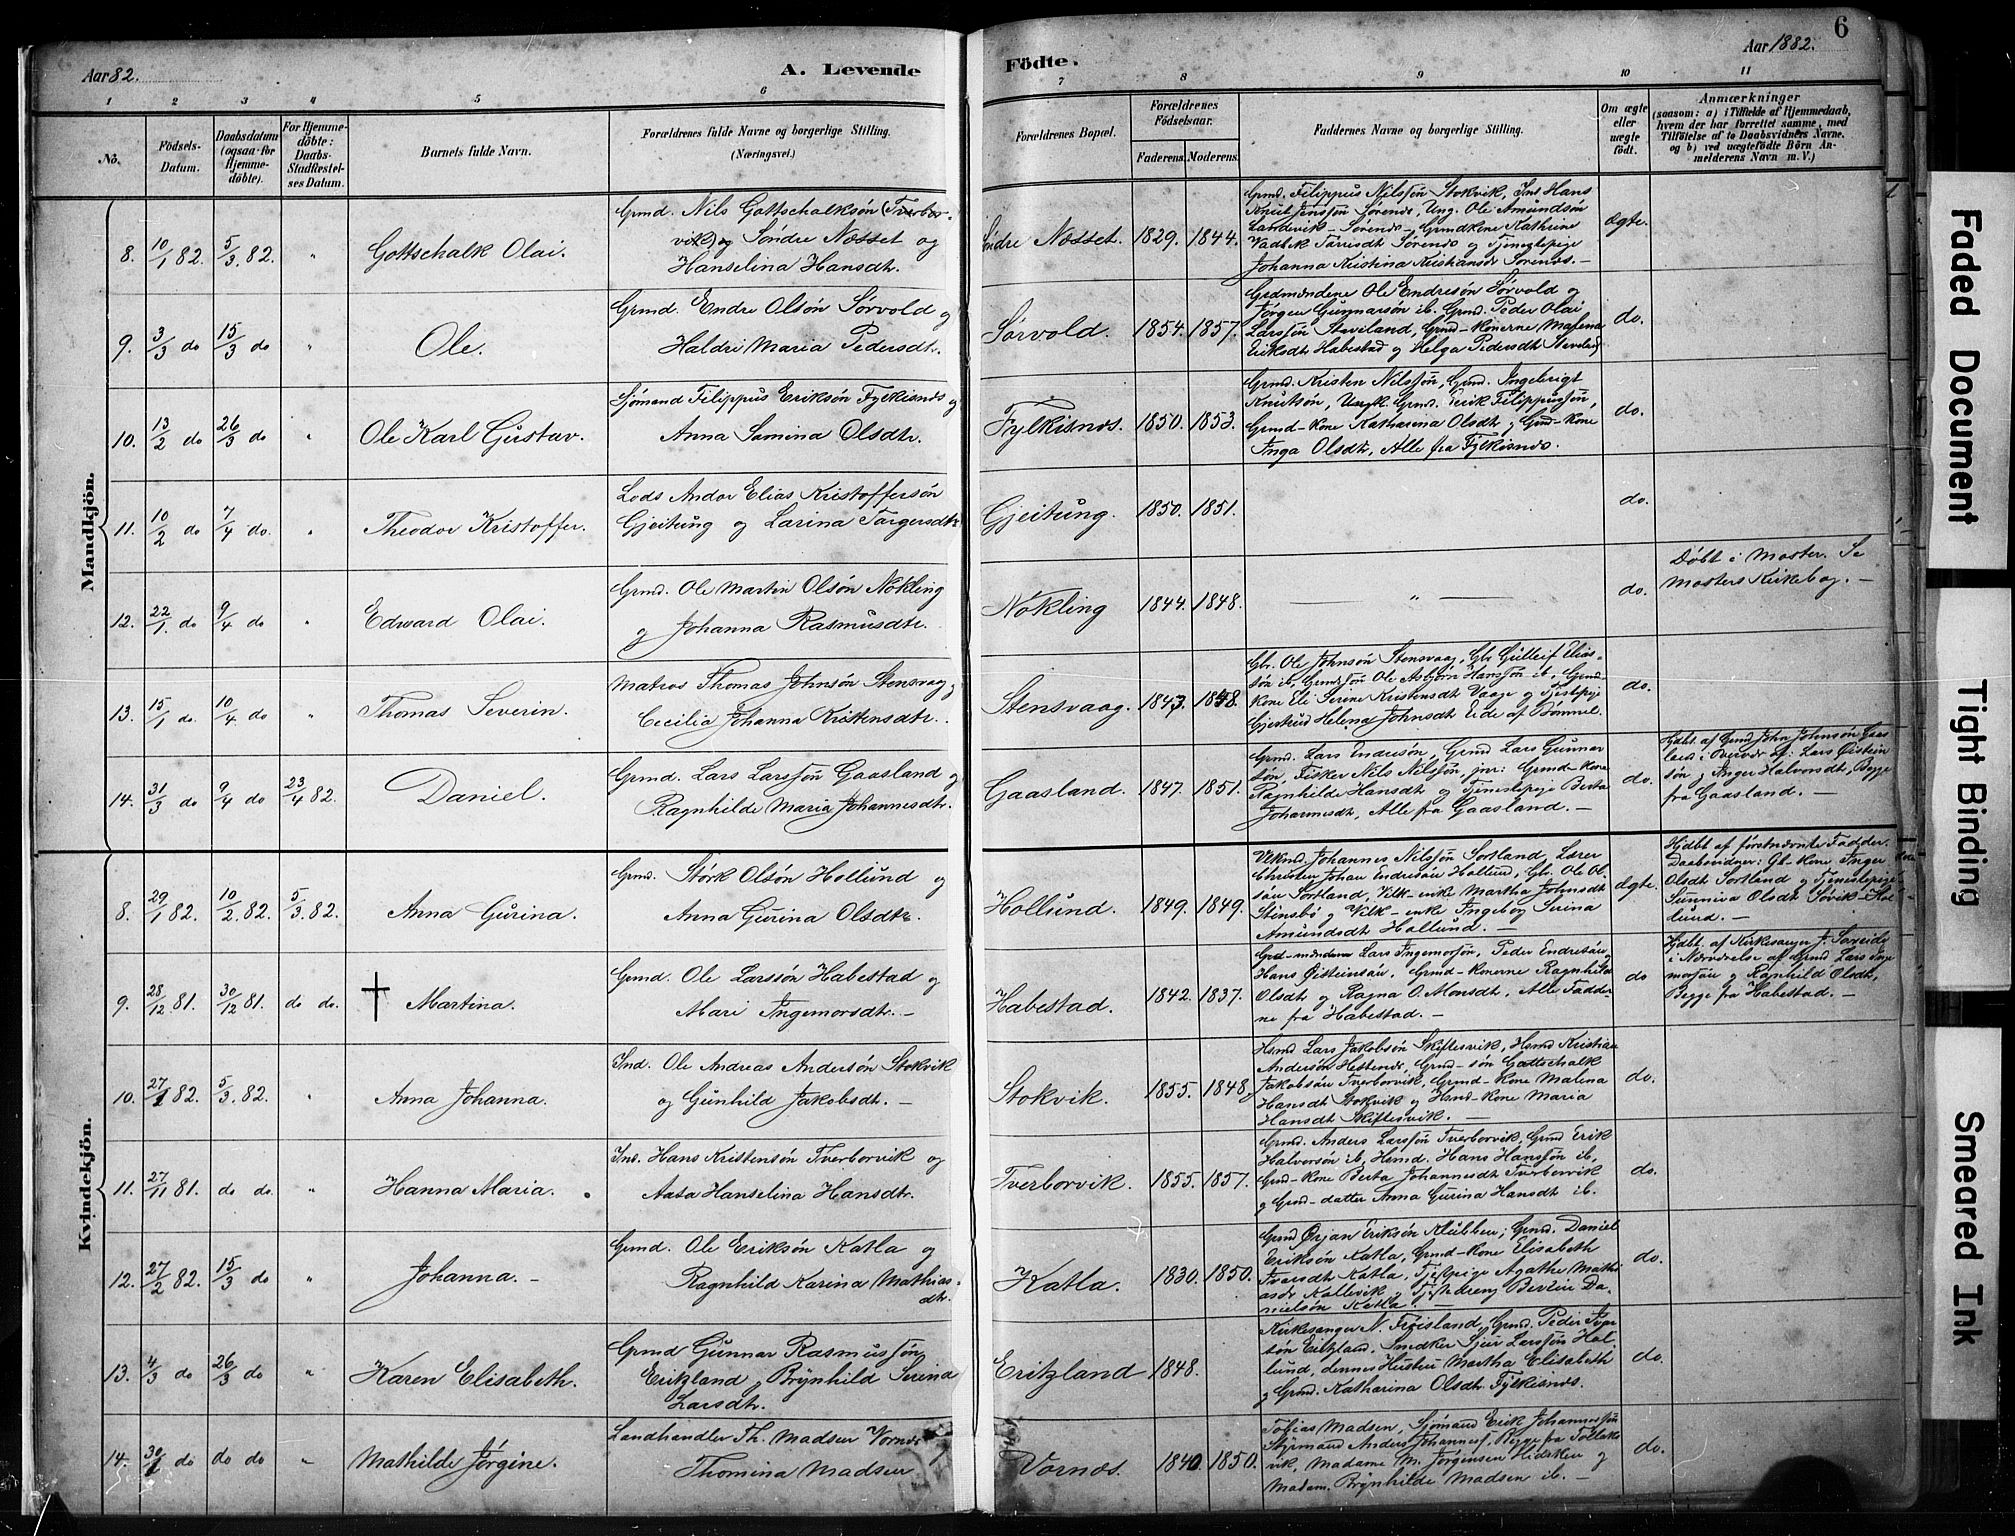 Aar 82.
A. Levende
Födte.
Aar 1882.
6
1 2 3 4 5 6 7 8 9 10 11
No.
Födsels-
Datum.
Daabsdatum
(ogsaa for
Hjemme-
döbte).
For Hjemme-
döbte:
Daabs-
Stadfæstel-
ses Datum.
Barnets fulde Navn.
Forældrenes fulde Navne og borgerlige Stilling.
(Næringsvei.)
Forældrenes Bopæl.
Forældrenes
Födselsaar.
Faderens. Moderens.
Faddernes Navne og borgerlige Stilling.
Om ægte
eller
uægte
födt.
Anmærkninger
(saasom: a) i Tilfælde af Hjemmedaab,
hvem der har forrettet samme, med
Tilföielse af to Daabsvidners Navne,
og b) ved uægtefödte Börn An-
melderens Navn m. V.)
Mandkjön.
8. 10/1 82. 5/3 82. " Gottschalk Olai.
Grmd. Nils Gottschalksön (Tverbor-
vik) og Søndre Næsset og
Hanselina Hansdtr.
Søndre Næsset. 1829. 1844.
Grmd. Filippus Nilssön Stokvik, Ins Hans
Knut Jenssön Sørenæs, Ung. Ole Amundsön
Landevik - Sørenæs - Grmdkone Kathrine
Johanna Kristina Kristiansdr Sørenæs. -
ægte.
9. 3/3 do 15/3 do " Ole.
Grmd. Endre Olsön Sørvold og
Haldri Maria Pedersdtr.
Sørvold. 1854. 1857.
Grdmændene Ole Endresön Sørvold og
Jørgen Gunnarsön ib. Grmd. Peder Olai
Larssön Staveland, Grmd-konerne Malena
Eriksdtr Habestad og Helga Pedersdt Staveland
do.
10. 13/2 do 26/3 do " Ole Karl Gustav.
Sjømand Filippus Eriksön Fylkisnæs og
Anna Samina Olsdtr.
Fylkisnæs. 1850. 1853.
Grmd. Kristen Nilssön, Grmd. Ingebrigt
Knutsön, Ungk. Grmd. Erik Filippussön,
Grmd-kone Katharina Olsdt og Grmd-kone
Inga Olsdtr, Alle fra Fylkisnæs.
do.
11. 10/2 do 7/4 do. " Theodor Kristoffer.
Lods Andor Elias Kristoffersön
Gjeitung og Larina Torgersdtr
Gjeitung. 1850. 1851.
do.
12. 22/1 do 9/4 do " Edward Olai.
Grmd. Ole Martin Olsön Nökling
og Johanna Rasmusdtr.
Nökling 1844. 1848.
"
do.
Døbt i Moster. Se
Mosters Kirkebog. -
13. 15/1 do. 10/4 do " Thomas Severin.
Matros Thomas Johnsön Stensvaag og
Cecilia Johanna Kristensdtr.
Stensvaag. 1843. 1848.
Gbr. Ole Johnsön Stensvaag, Gbr Gulleif Elias-
sön ib, Grmdsön Ole Asbjørn Hanssön ib, Grmd-
kone Eli Serine Kristensdt Vaage og Tjestepige
Gjertrud Helena Johnsdt Eide af Bömmel.
do.
14. 31/3 do 9/4 do 23/4 82. Daniel.
Grmd. Lars Larssön Gaasland og
Ragnhilde Maria Johannesdtr.
Gaasland. 1847. 1851.
Grmd. Lars Endresön, Grmd Lars Gunnar
sön, Fisker Nils Nilssön, jnr: Grmd-kone
Ragnhilde Hansdt og Tjenestepige Berta
Johannesdt, Alle fra Gaasland. -
do.
Hjdbt. af Grmd John Johnsön Gaas-
land i Overvær af: Lars Øistein
sön og Inger Halvorsdt, Begge
fra Gaasland. -
Kvindekjön.
8. 29/1 82. 10/2 82. 5/3 82. Anna Gurina.
Grmd. Störk Olsön Hollund og
Anna Gurina Olsdtr.
Hollund. 1849. 1849.
Vilkmd. Johannes Nilssön Sortland, Lærer
Christen Johan Endresön Hollund, Gbr. Ole Ol-
sön Sortland, Vilk-enke Martha Johnsdt
Stensbö og Vilk-enke Ingeborg Serina
Amundsdt Hollund. -
ægte.
Hjdbt af förstnævnte Fadder.
Daabsvidner: Gbr-kone Inger
Olsdt Sortland og Tjenestepige
Sunniva Olsdt Søvik - Hol-
lund. -
9. 28/12 81. 30/12 81. do do. † Martina.
Grmd. Ole Larssön Habestad og
Mari Ingemorsdtr. -
Habestad. 1842. 1837.
Grd-mændene Lars Ingemorsön, Peder Endresön og
Hans Øisteinsön, Grmd-konerne Ragnhild
Olsdt og Ragna O. Monsdt, Alle Fadder-
ne fra Habestad. -
do
Hjdbt. af Kirkesanger J. Søreide
i Nærværelse af Grmd Lars Inge
morsön og Ragnhild Olsdt,
Begge fra Habestad. -
10. 27/1 82. 5/3 82. " Anna Johanna.
Ind. Ole Andreas Andersön Stokvik
og Gunhild Jakobsdt. -
Stokvik. 1855. 1848,
Hsmd Lars Jakobsön Skiftesvik, Hsmd Kristian
Andersön Hestenæs, Grmd-sön Gottschalk
Jakobsön Tverborvik, Grmd-kone Malena
Hansdt Stokvik og Hsmd-kone Maria
Hansdt Skiftesvik. -
do.
11. 27/11 81. do do. " Hanna Maria.
Ins. Hans Kristensön Tverborvik og
Aasa Hanselina Hansdtr.
Tverborvik. 1855. 1857.
Grmd. Anders Larssön Tverborvik, Grmd Erik
Halvorsön ib, Hsmd. Hans Hanssön ib,
Grmd-kone Berta Johannesdt Tverborvik
og Grmd-datter Anna Gurina Hansdt ib.
do.
12. 27/2 82. 15/3 do " Johanna. -
Grmd. Ole Eriksön Katla og
Ragnhild Karina Mathias-
dtr.
Katla. 1830. 1850.
Grmd Ørjan Eriksön Klubben; Grmd. Daniel
Eriksön Katla, Grmd-kone Elisabeth
Ivarsdt Katla, Tjestepige Agathe Mathi
asdr Kallevik og Tjestedreng Da-
nielsön Katla. -
do.
13. 4/3 do 26/3 do " Karen Elisabeth.
Grmd Gunnar Rasmussön
Eritzland og Brynhild Serina
Larsdtr.
Eritzland 1848.
Kirkesanger N. Frøisland, Grmd. Peder Iver
sön Eritzland, Smedker Sjur Larssön Hol-
lund, dennes Hustru Martha Elisabeth
og Grmd. Katharina Olsdtr. Fylkisnæs.
do.
14. 30/1 do do do " Mathilde Jørgine.
Landhandler Th. Madsen Vornæs
Thomina Madsen
Vornæs. 1840. 1850.
Tobias Madsen, Sjømand Erik Johannessön
Styrmand Anders Johanness, Begge fra Folleso
vik, Madame M. Jørgensen Hidsken og
Madam. Brynhilde Madsen ib. -
do.
Faded Document
Tight Binding
Smeared Ink